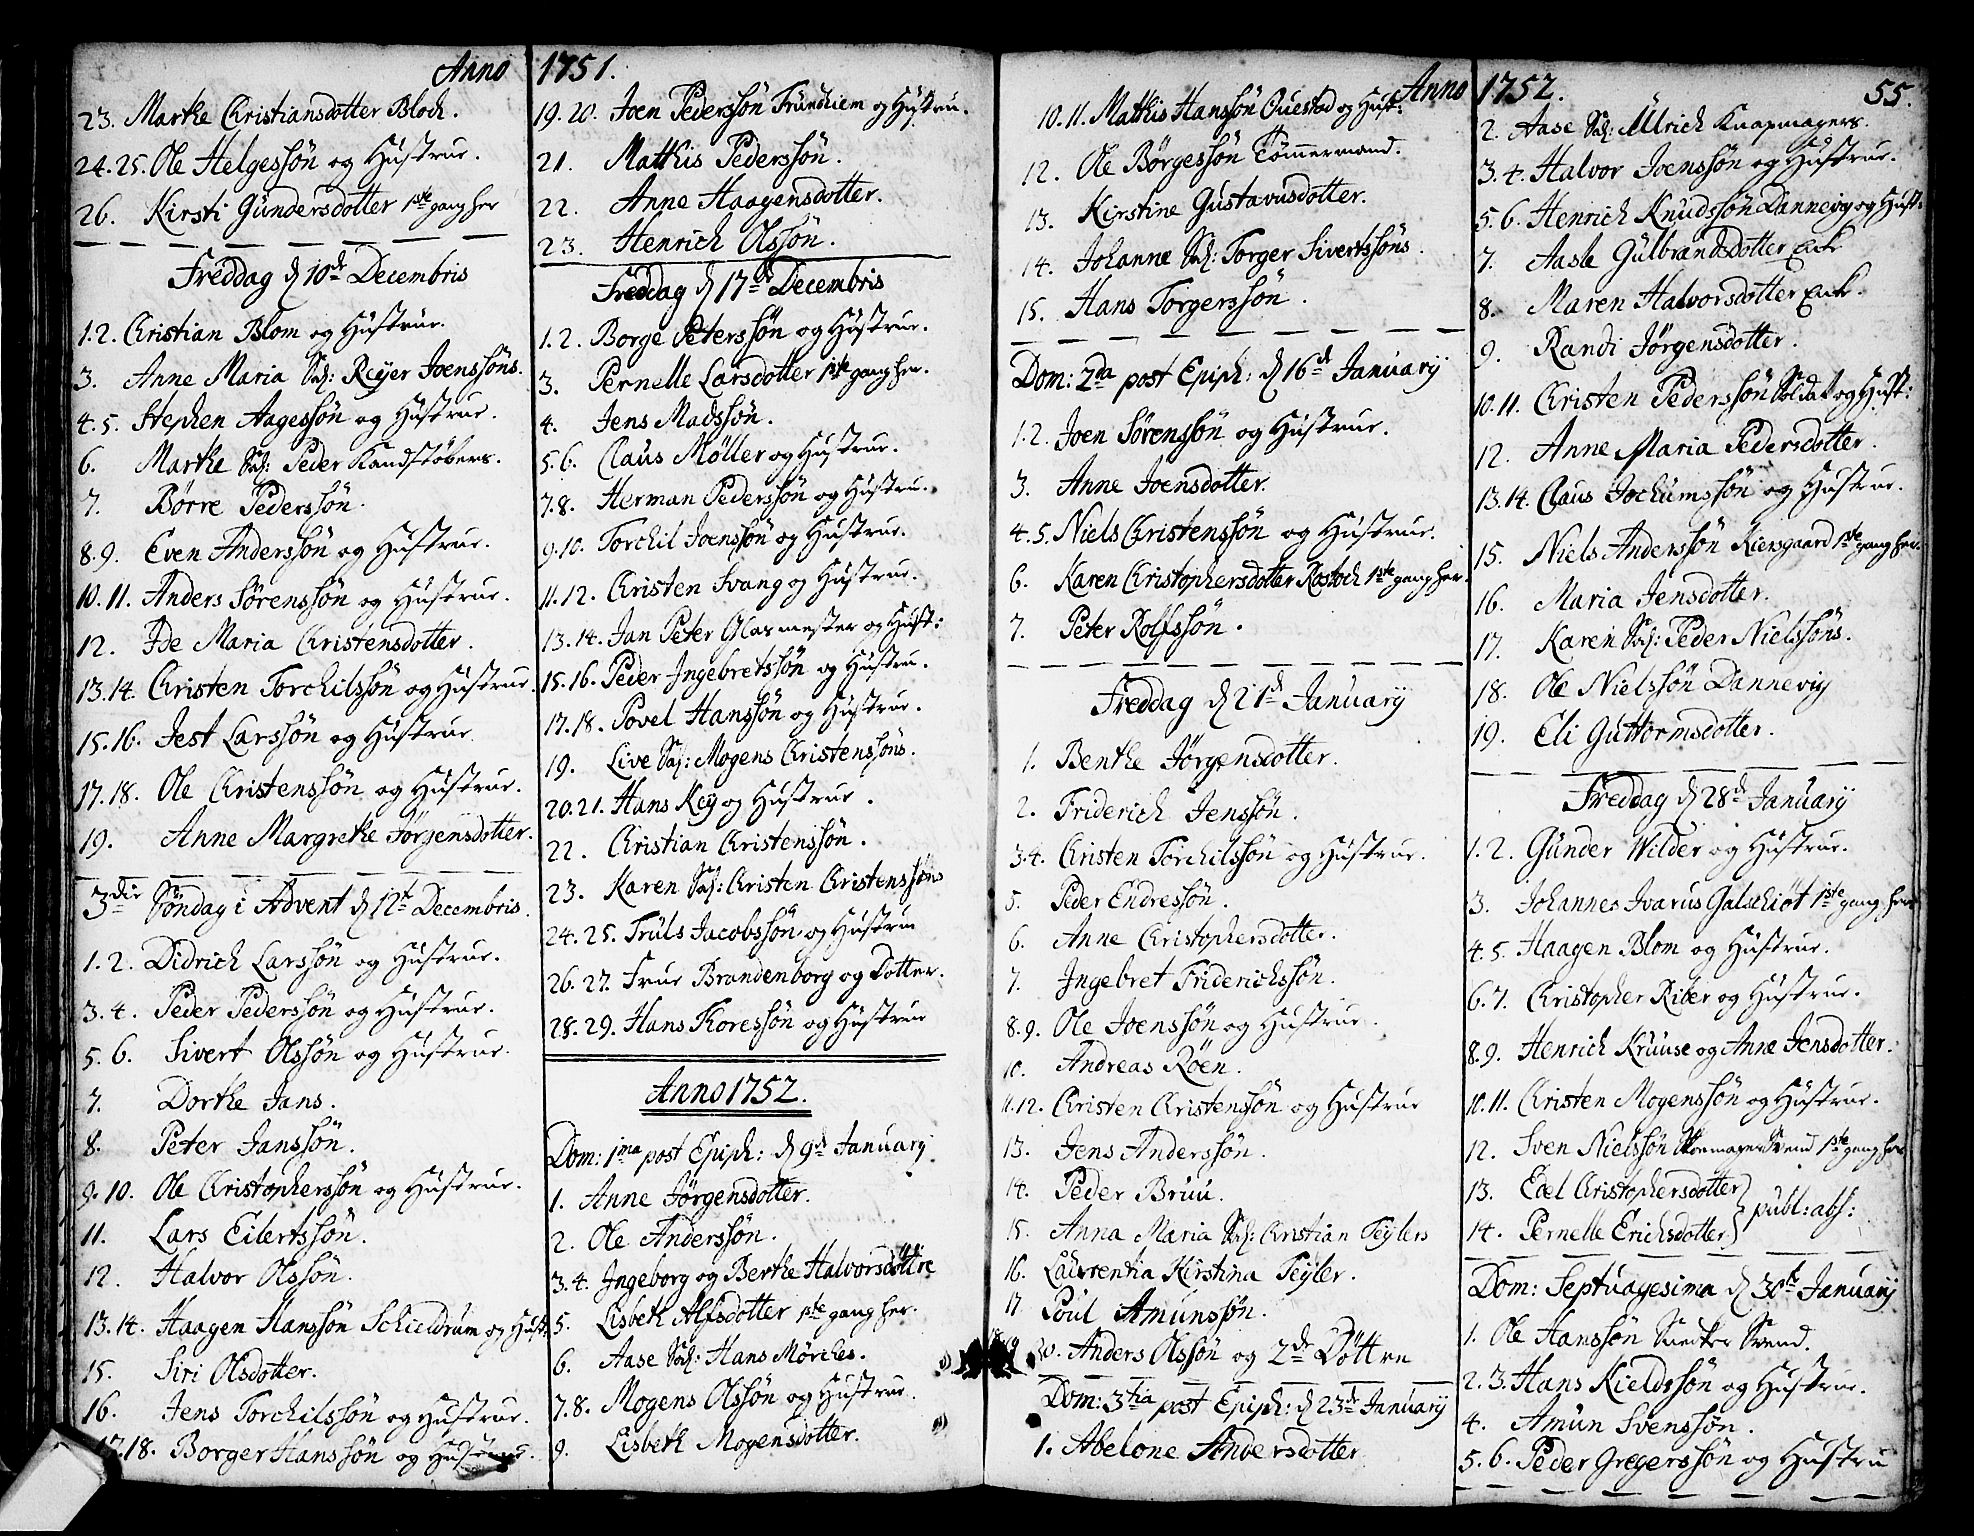 Anno 1751.
23. Marthe Christiansdotter Bloch.
24. 25. Ole Helgessön og Hustrue.
26. Kirsti Gündersdotter 1ste gang her
Freddag d 10de Decembris
1. 2. Christian Blom og Hüstrue.
3. Anne Maria Sal: Reyer Joenssöns.
4. 5. Stephen Aagessön og Hüstrue.
6. Marthe Sal: Peder Kandstöbers.
7. Börre Pederssön.
8. 9. Even Anderssön og Hustrue.
10. 11. Anders Sörenssön og Hustrue.
12. Ide Maria Christensdotter.
13. 14. Christen Torchilssön og Hustrue.
15. 16. Jest Larssön og Hustrue
17. 18. Ole Christenssön og Hustrue.
19. Anne Margrethe Jörgensdotter.
3die Söndag i Advent d 12te Decembris.
1. 2. Didrich Larssön og Hustrue.
3. 4. Peder Pederssön og Hustrue.
5. 6. Sivert Olssön og Hustrue.
7. Dorthe Jans.
8. Peter Janssön.
9. 10. Ole Christopherssön og Hustrue.
11. Lars Eilertssön.
12. Halvor Olssön.
13. 14. Haagen Hanssön Schieldrum og Hust:
15. Siri Olsdotter.
16. Jens Torchilssön og Hustrue.
17. 18. Borger Hanssön og Hustrue.
19. 20. Joen Pederssön Trundhiem og Hustru.
21. Mathis Pederssön.
22. Anne Haagensdotter.
23. Henrich Olssön.
Freddag d 17de Decembris
1. 2. Borge Peterssön og Hüstrue.
3. Pernelle Larsdotter 1ste gang her.
4. Jens Madssön.
5. 6. Claus Möller og Hustrue.
7. 8. Herman Pederssön og Hustru.
9. 10. Torchil Joenssön og Hustrue.
11. 12. Christen Svang og Hustrue.
13. 14. Jan Peter Glasmester og Hust:
15. 16. Peder Ingebretssön og Hustru.
17. 18. Povel Hanssön og Hustrue.
19. Live Sal: Mogens Christenssöns.
20. 21. Hans Key og Hustrue.
22. Christian Christenssön.
23. Karen Sal: Christen Christenssöns
24. 25. Truls Jacobssön og Hustrue
26. 27. Frue Brandenborg og Dotter.
28. 29. Hans Thoressön og Hustrue
Anno 1752.
Dom: 1ma post Epiph: d 9de January
1. Anne Jörgensdotter.
2. Ole Anderssön.
3. 4. Ingeborg og Berthe Halvorsdöttre
5. Lisbeth Alfsdotter 1ste gang her.
6. Aase Sal: Hans Mörches.
7. 8. Mogens Olssön og Hustrue.
9. Lisbeth Mogensdotter.
Anno 1752. 55.
10. 11. Mathis Hanssön Questad og Hust:
12. Ole Börgessön Tömmermand.
13. Kirstine Gustavusdotter.
14. Johanne Sal: Torger Sivertssöns.
15. Hans Torgerssön.
Dom: 2da post Epiph: d 16de January
1. 2. Joen Sörenssön og Hüstrue.
3. Anne Joensdotter.
4. 5. Niels Christenssön og Hustrue.
6. Karen Christophersdotter Rostoch 1ste gang her.
7. Peter Rolfssön.
Freddag d 21de January
1. Benthe Jörgensdotter.
2. Friderich Jenssön.
3. 4. Christen Torchilssön og Hustrue.
5. Peder Endressön.
6. Anne Christophersdotter.
7. Ingebret Friderichssön.
8. 9. Ole Joenssön og Hustrue.
10. Andreas Röen.
11. 12. Christen Christenssön og Hustrue
13. Jens Anderssön.
14. Peder Bruu.
15. Anna Maria Sal: Christian Teylers
16. Laurentia Kirstina Teyler.
17 Poul Amunssön.
18. 19 20. Anders Olssön og 2de Döttre
Dom: 3tia post Epiph: d 23de January
1. Abelone Andersdotter
2. Aase Sal: Ulrich Knapmagers.
3. 4. Halvor Joenssön og Hustrue.
5. 6. Henrich Knudssön Dannevig og Hust.
7. Aasle Gulbrandsdotter Enke
8. Maren Halvorsdotter Enke.
9. Randi Jörgensdotter.
10. 11. Christen Pederssön Soldat og Hust:
12. Anne Maria Pedersdotter.
13. 14. Claus Jochumssön og Hustrue.
15. Niels Anderssön Kiersgaard 1ste gang her.
16. Maria Jensdotter.
17. Karen Sal: Peder Nielssöns.
18. Ole Nielssön Dannevig
19. Eli Guttormsdotter.
Freddag d 28de January
1. 2. Gunder Wilder og Hustrue.
3. Johannes Ivarus Galschiöt 1ste gang her
4. 5. Haagen Blom og Hustrue.
6. 7. Christopher Riber og Hustrue.
8. 9. Henrich Kruuse og Anne Jensdotter.
10. 11. Christen Mogenssön og Hustrue.
12. Sven Nielssön Skomager Svend 1ste gang her
13. Edel Christophersdotter
14. Pernelle Erichsdotter } publ: abs:
Dom: Septuagesima d 30te January
1. Ole Hanssön Snedker Svend.
2. 3. Hans Kieldssön og Hustrue.
4. Amun Svenssön.
5. 6. Peder Gregerssön og Hustru